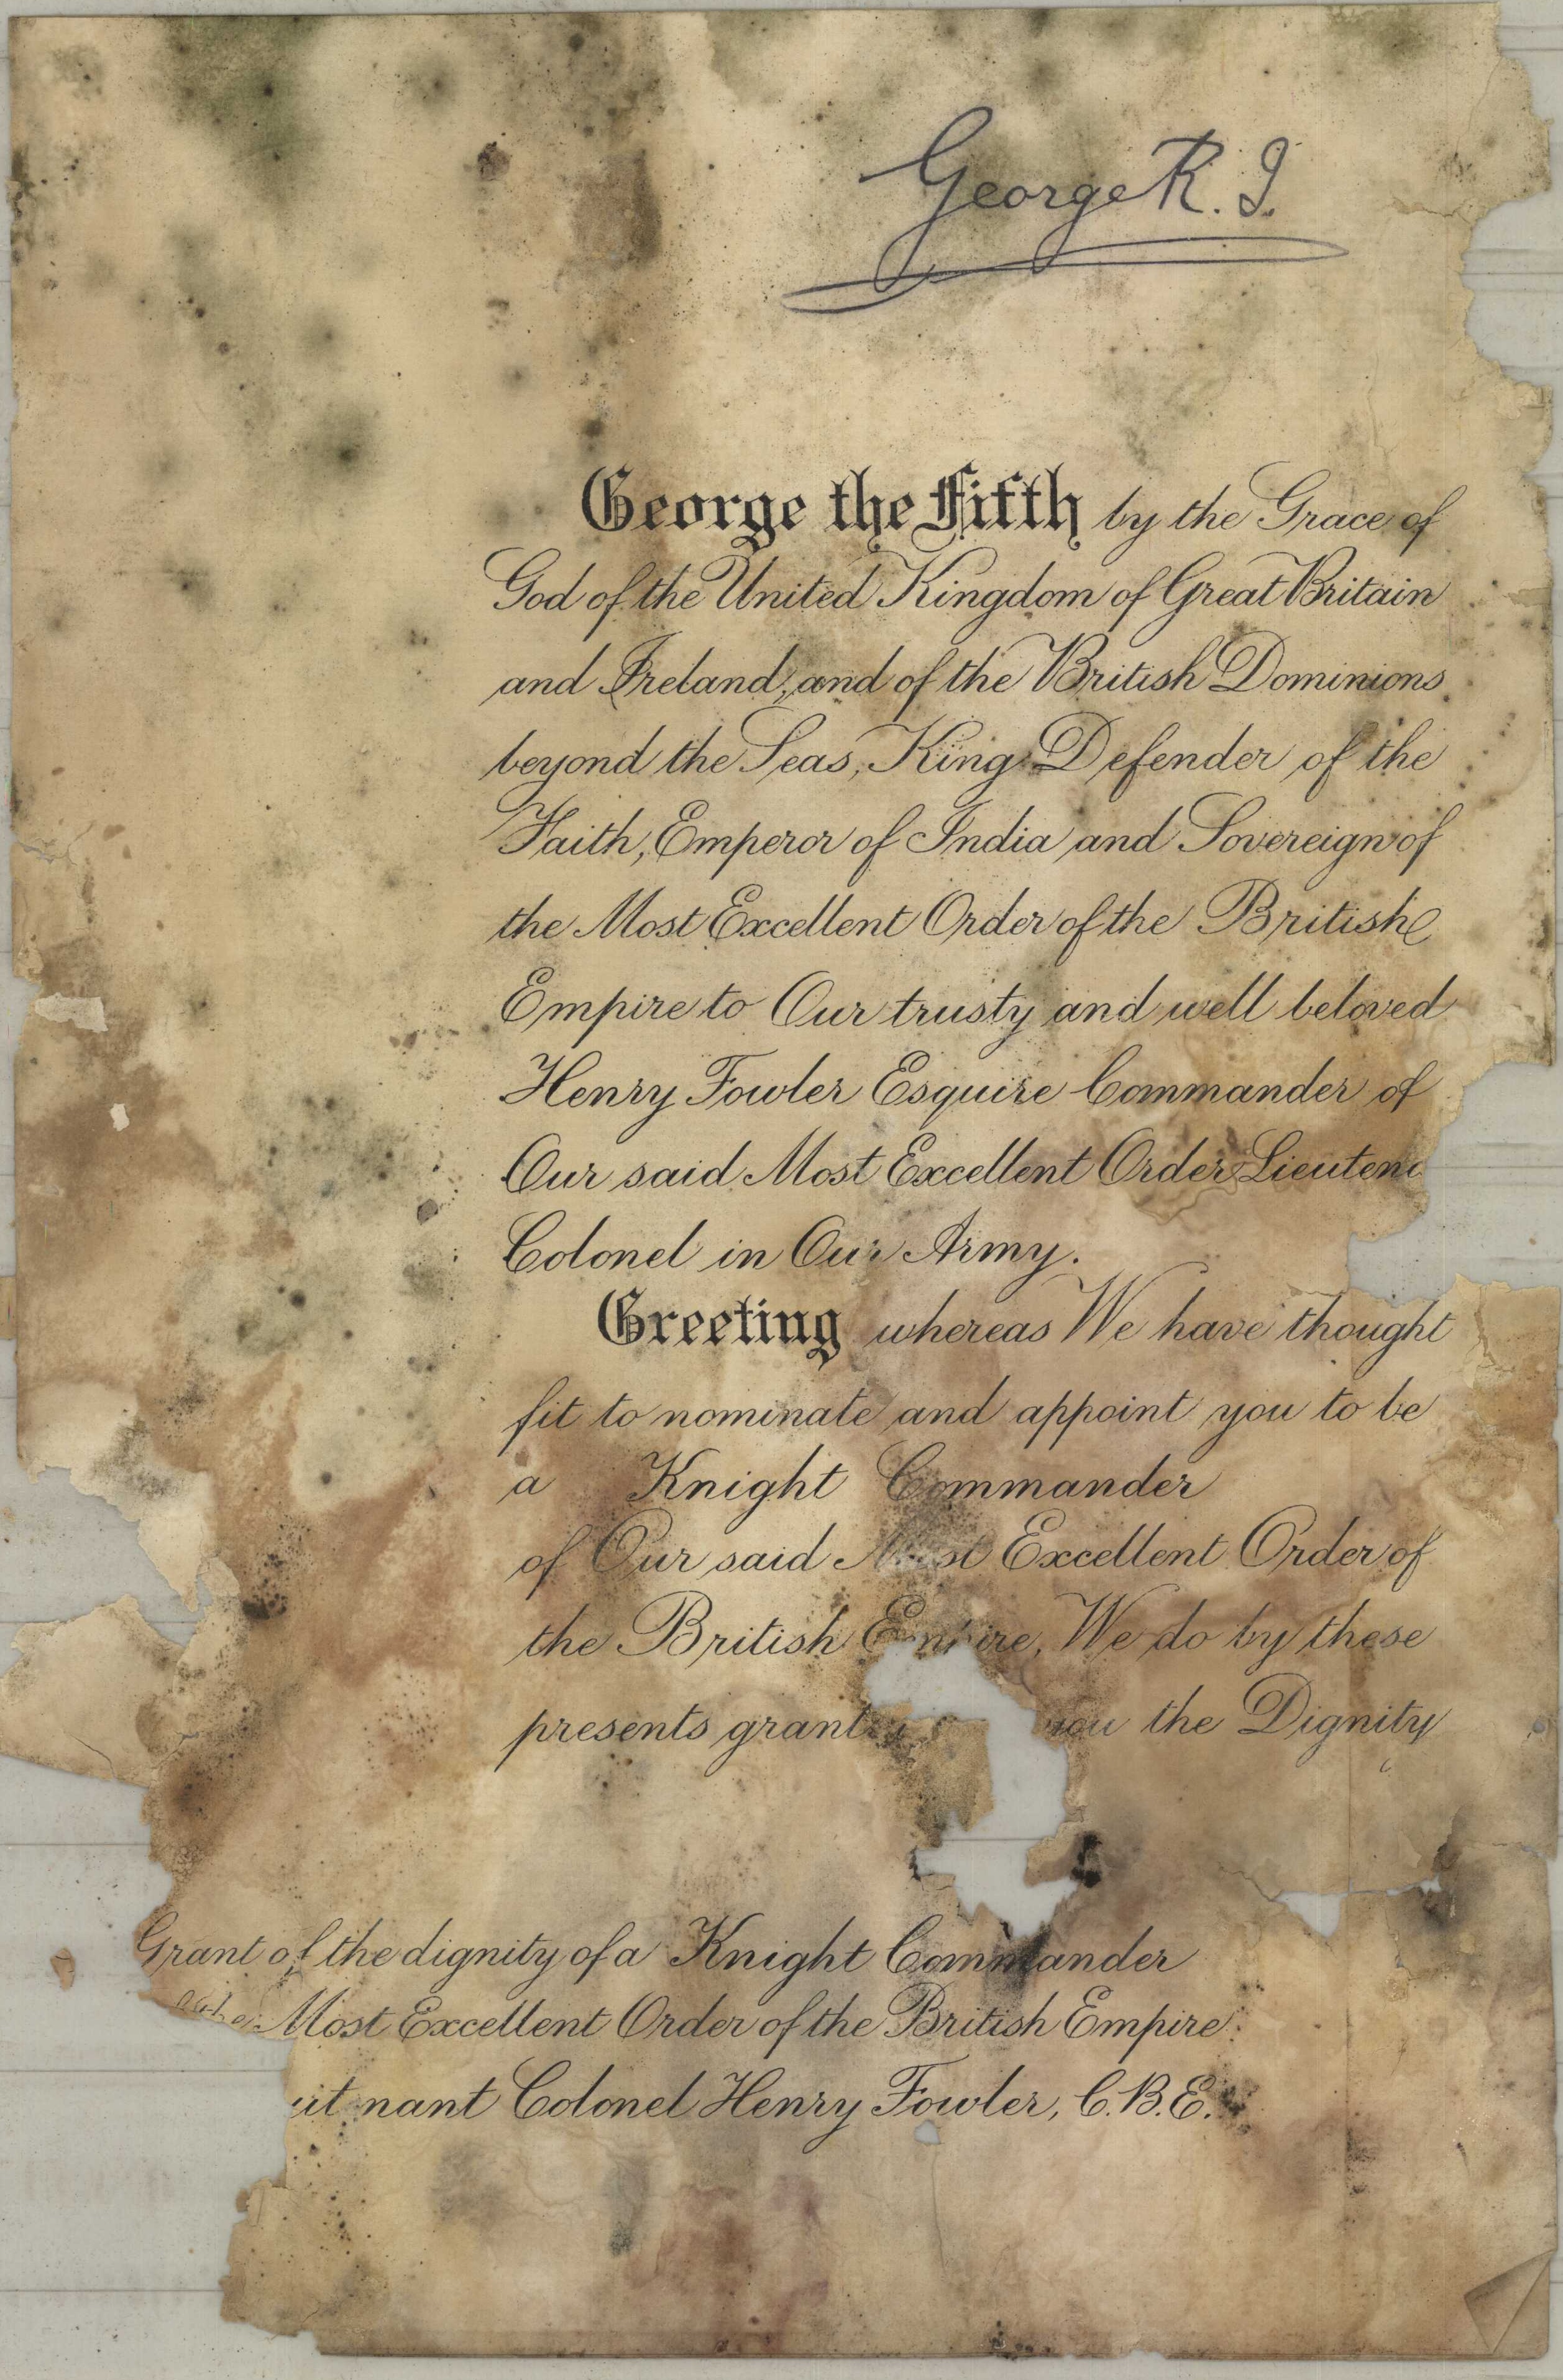 George R.I.
George the Fifth by the Grace of
God of the United Kingdom of Great Britain
and Ireland, and of the British Dominions
beyond the Seas, King, Defender of the
Faith, Emperor of India and Sovereign of
the Most Excellent Order of the British
Empire to Our trusty and well beloved
Henry Fowler Esquire Commander of
Our said Most Excellent Order Lieuten
Colonel in Our Army.
Greeting whereas We have thought
fit to nominate and appoint you to be
a Knight Commander
of Our said Most Excellent Order of
the British Empire, We do by these
presents grant you the Dignity
Grant of the dignity of a Knight Commander
Most Excellent Order of the British Empire
nant Colonel Henry Fowler, C.B.E.